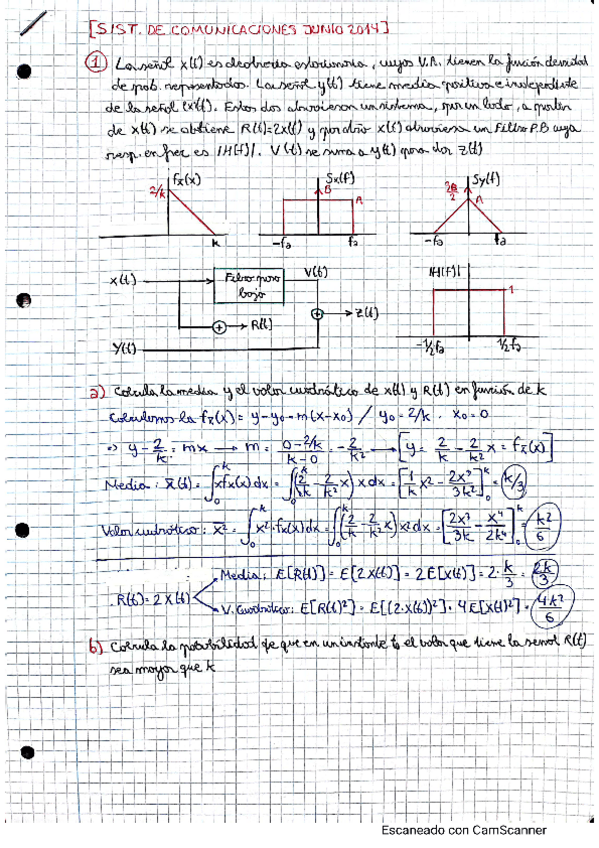 [SIST. DE COMUNICACIONES JUNIO 2014]
① La señal x(t) es aleatoria estacionaria, cuyas V.A. tienen la función densidad
de prob. representada. La señal y(t) tiene media positiva e independiente
de la señal x(t). Estas dos atraviesan un sistema, por un lado, a partir
de x(t) se obtiene R(t)=2x(t) y por otro x(t) atraviesa un Filtro P.B cuya
resp. en frec es |H(f)|. V(t) se suma a y(t) para dar Z(t)
fx(x) Sx(f) Sy(f)
2/k B A A
k -fa fa -fa fa
x(t) Filtro paso bajo V(t) |H(f)|
R(t) Z(t) 1
Y(t) -1/2fa 1/2fa
a) Calcula la media y el valor cuadrático de x(t) y R(t) en función de k
Calculamos la fx(x) = y-y0 = m(x-x0) / y0 = 2/k . x0 = 0
⇒ y - 2/k = mx → m = (0-2/k)/(k-0) = -2/k² → [y = 2/k - 2/k² x = fx(x)]
Media: x̄(t) = ∫₀ᵏ x fx(x) dx = ∫₀ᵏ (2/k - 2/k² x) x dx = [1/k x² - 2x³/3k²]₀ᵏ = k/3
Valor cuadrático: x̄² = ∫₀ᵏ x² · fx(x) dx = ∫₀ᵏ (2/k - 2/k² x) x² dx = [2x³/3k - x⁴/2k²]₀ᵏ = k²/6
Media: E[R(t)] = E[2x(t)] = 2E[x(t)] = 2·k/3 = 2k/3
R(t) = 2x(t)
V. Cuadrático: E[R(t)²] = E[(2·x(t))²] = 4E[x(t)²] = 4k²/6
b) Calcula la probabilidad de que en un instante t₀ el valor que tiene la señal R(t)
sea mayor que k
Escaneado con CamScanner